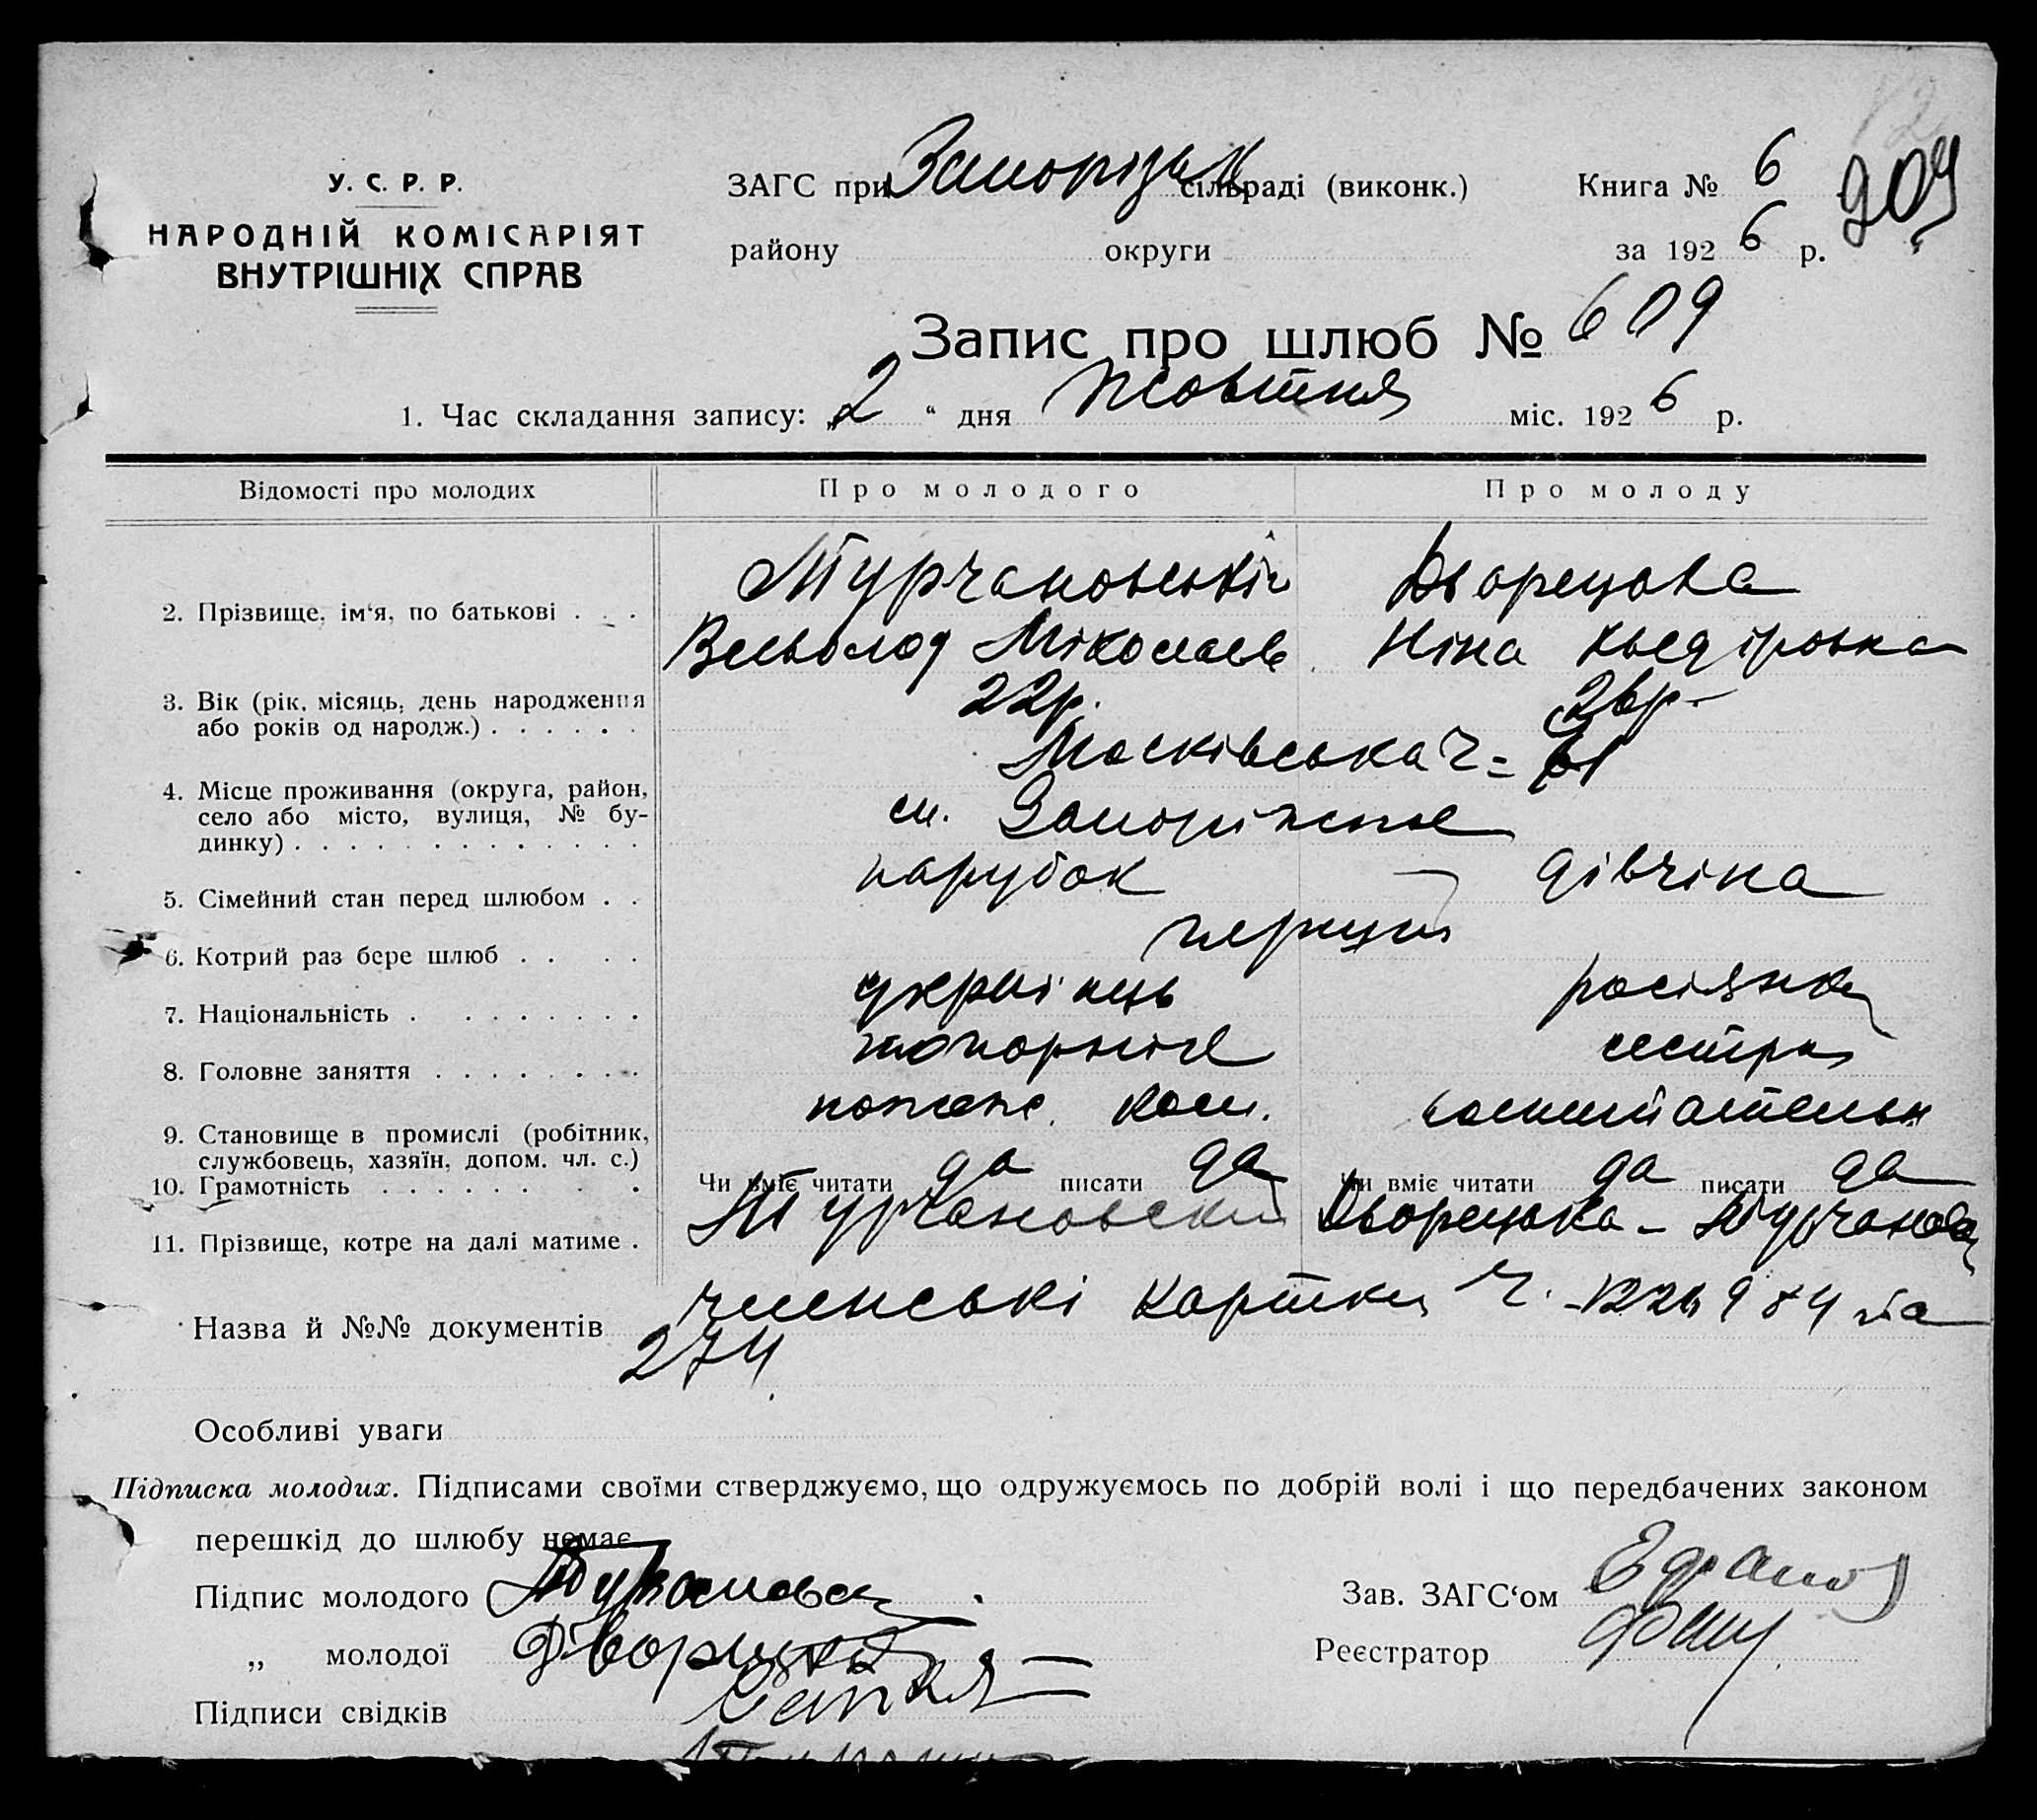 У. С. Р. Р.
НАРОДНІЙ КОМІСАРІЯТ
ВНУТРІШНІХ СПРАВ
ЗАГС при Запорізьк сільраді (виконк.)
Книга № 6
904
району округи за 1926 р.
Запис про шлюб № 609
1. Час складання запису: „2“ дня Жовтня міс. 1926 р.
Відомості про молодих Про молодого Про молоду
2. Прізвище, ім‘я, по батькові . . . Турчановський Дворецька
Всеволод Міколаєв Ніна
3. Вік (рік, місяць, день народження 22р. 26р.
або років од народж.) . . . . . .
Московська ч = 61
4. Місце проживання (округа, район,
село або місто, вулиця, № бу-
динку) . . . . . . . . . . . . . .
м. Запоріжжє
5. Сімейний стан перед шлюбом . . парубок дівчіна
6. Котрий раз бере шлюб . . . . перший
7. Національність . . . . . . . . українець росіянка
8. Головне заняття . . . . . . . . топорнік сестра
9. Становище в промислі (робітник, пожежн. ком.
службовець, хазяїн, допом. чл. с.)
10. Грамотність . . . . . . . . Чи вміє читати да писати да Чи вміє читати да писати да
11. Прізвище, котре на далі матиме . Турчановский Дворецька - Турчанов
Назва й №№ документів членські картки ч. та
274
Особливі уваги
Підписка молодих. Підписами своїми стверджуємо, що одружуємось по добрій волі і що передбачених законом
перешкід до шлюбу немає
Підпис молодого
Зав. ЗАГС‘ом
„ молодої Дворецкая
Реєстратор
Підписи свідків